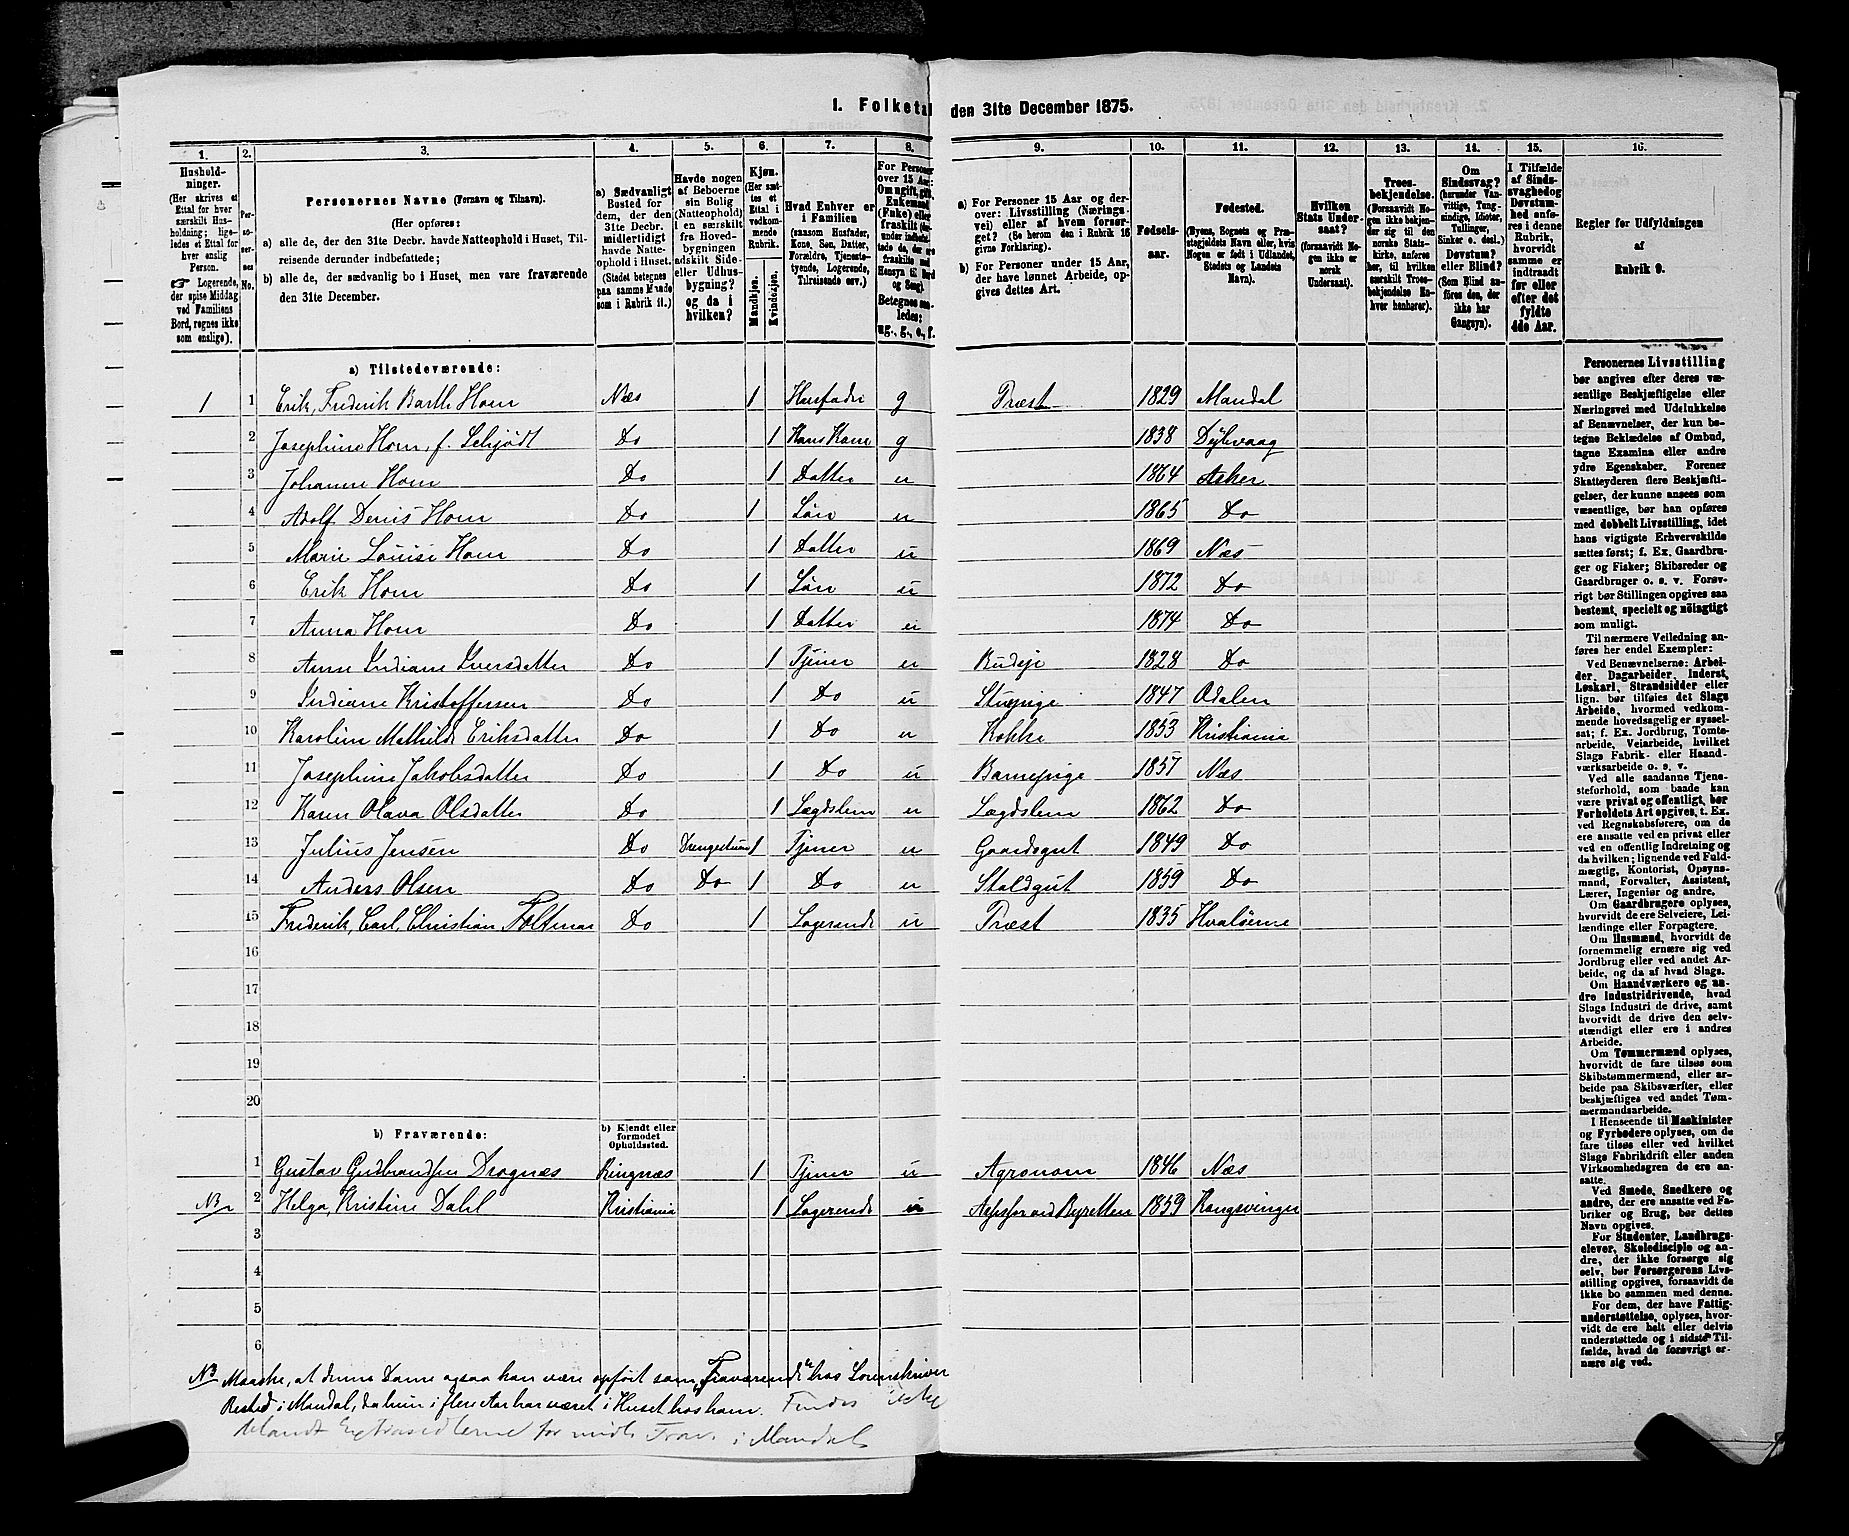 1. Folketal den 31te December 1875.
1. 2. 3. 4. 5. 6. 7. 8. 9. 10. 11. 12. 13. 14. 15. 16.
Hushold-
ninger.
(Her skrives et
Ettal for hver
særskilt Hus-
holdning; lige-
ledes et Ettal for
hver enslig
Person.
☞ Logerende,
der spise Middag
ved Familiens
Bord, regnes ikke
som enslige).
Per-
so-
ner-
nes
No.
Personernes Navne (Fornavn og Tilnavn).
(Her opføres:
a) alle de, der den 31te Decbr. havde Natteophold i Huset, Til-
reisende derunder indbefattede;
b) alle de, der sædvanlig bo i Huset, men vare fraværende
den 31te December.
a) Sædvanligt
Bosted for
dem, der den
31te Decbr.
midlertidigt
havde Natte-
ophold i Huset.
(Stedet betegnes
paa samme Maade
som i Rubrik 11.)
Havde nogen
af Beboerne
sin Bolig
(Natteophold)
i en særskilt
fra Hoved-
bygningen
adskilt Side-
eller Udhus-
bygning?
og da i
hvilken?
Kjøn.
(Her sæt-
tes et
Ettal i
vedkom-
mende
Rubrik.
Mandkjøn.
Kvindekjøn.
Hvad Enhver er
i Familien
(saasom Husfader,
Kone, Søn, Datter,
Forældre, Tjeneste-
tyende, Logerende,
Tilreisende osv.)
For Personer
over 15 Aar:
Om ugift, gift,
Enkemand
(Enke) eller
fraskilt
Betegnes saa-
ledes:
ug., g., e., f.
a) For Personer 15 Aar og der-
over: Livsstilling (Nærings-
vei) eller af hvem forsør-
get? (Se herom den i Rubrik 16
givne Forklaring).
b) For Personer under 15 Aar,
der have lønnet Arbeide, op-
gives dettes Art.
Fødsels-
aar.
Fødested.
(Byens, Sognets og Præ-
stegjeldets Navn eller, hvis
Nogen er født i Udlandet,
Stedets og Landets
Navn).
Hvilken
Stats Under-
saat?
(forsaavidt No-
gen ikke er
norsk
Undersaat).
Troes-
bekjendelse.
(Forsaavidt No-
gen ikke bekjen-
der sig til den
norske Stats-
kirke, anføres
her, til hvilken
særskilt Troes-
bekjendelse En-
hver henhører).
Om
Sindssvag?
(herunder Van-
vittige, Tung-
sindige, Idioter,
Tullinger,
Sinker o. desl.)
Døvstum?
eller Blind?
(Som Blind an-
føres den, der
ikke har
Gangsyn).
I Tilfælde
af Sinds-
svaghed og
Døvstum-
hed anfø-
res i denne
Rubrik,
hvorvidt
samme er
indtraadt
før eller
efter det
fyldte
4de Aar.
Regler for Udfyldningen
af
Rubrik 9.
a) Tilstedeværende:
1 1 Erik, Frederik Barth Horn Næs 1 Husfader g Præst 1829 Mandal
2 Josephine Horn, f. Schjødt Do 1 Hans Kone g 1838 Dybvaag
3 Johanne Horn Do 1 Datter u 1864 Asker
4 Adolf Denis Horn Do 1 Søn u 1865 Do
5 Marie Louise Horn Do 1 Datter u 1869 Næs
6 Erik Horn Do 1 Søn u 1872 Do
7 Anna Horn Do 1 Datter u 1874 Do
8 Anne Indiane Iversdatter Do 1 Tjener u Budeje 1828 Do
9 Indiane Kristoffersen Do 1 Do u Stuepige 1847 Odalen
10 Karoline Mathilde Eriksdatter Do 1 Do u Kokke 1853 Kristiania
11 Josephine Jakobsdatter Do 1 Do u Barnepige 1857 Næs
12 Karen Olava Olsdatter Do 1 Lægdslem u Lægdslem 1862 Do
13 Julius Jensen Do Drengestuen 1 Tjener u Gaardsgut 1849 Do
14 Anders Olsen Do Do 1 Do u Staldgut 1859 Do
15 Frederik, Carl, Christian Feltman Do 1 Logerende u Præst 1835 Hvaløerne
16
17
18
19
20
b) Fraværende:
b) Kjendt eller
formodet
Opholdssted.
1 Gustav Gudbrandsen Drognæs Ringnæs 1 Tjener u Agronom 1846 Næs
NB 2 Helga, Kristine Dahl Kristiania 1 Logerende u Assessor ved Byretten 1859 Kongsvinger
3
4
5
6
NB Maaske, at denne Dame ogsaa kan være opført som "Fraværende" hos Sorenskriver
Rested i Mandal, da hun i flere Aar har været i Huset hos ham. Findes ikke
blandt Extrasedlerne for midl. Frav. i Mandal.
Personernes Livsstilling
bør angives efter deres væ-
sentlige Beskjæftigelse eller
Næringsvei med Udelukkelse
af Benævnelser, der kun be-
tegne Beklædelse af Ombud,
tagne Examina eller andre
ydre Egenskaber. Forener
Skatteyderen flere Beskjæfti-
gelser, der kunne ansees som
væsentlige, bør han opføres
med dobbelt Livsstilling, idet
hans vigtigste Erhvervskilde
sættes først; f. Ex. Gaardbru-
ger og Fisker; Skibsreder og
Gaardbruger o. s. v. Forøv-
rigt bør Stillingen opgives saa
bestemt, specielt og nöiagtigt
som muligt.
Til nærmere Veiledning an-
føres her endel Exempler:
Ved Benævnelserne: Arbei-
der, Dagarbeider, Inderst,
Løskarl, Strandsidder eller
lign. bør tilføies det Slags
Arbeide, hvormed vedkom-
mende hovedsagelig er syssel-
sat; f. Ex. Jordbrug, Tomte-
arbeide, Veiarbeide, hvilket
Slags Fabrik- eller Haand-
værksarbeide o. s. v.
Ved alle saadanne Tjene-
steforhold, som baade kan
være privat og offentligt, bør
Forholdets Art opgives, t. Ex.
ved Regnskabsførere, om de
ere ansatte ved en privat eller
ved en offentlig Indretning og
da hvilken; lignende ved Fuld-
mægtig, Kontorist, Opsyns-
mand, Forvalter, Assistent,
Lærer, Ingeniør og andre.
Om Gaardbrugere oplyses,
hvorvidt de ere Selveiere, Lei-
lændinge eller Forpagtere.
Om Husmænd, hvorvidt de
fornemmelig ernære sig ved
Jordbrug eller ved andet Ar-
beide, og da af hvad Slags.
Om Haandværkere og an-
dre Industridrivende, hvad
Slags Industri de drive, samt
hvorvidt de drive den selv-
stændigt eller ere i andres
Arbeide.
Om Tømmermænd oplyses,
hvorvidt de fare tilsøs som
Skibstømmermænd, eller ar-
beide paa Skibsværfter, eller
beskjæftiges ved andet Tøm-
mermandsarbeide.
I Henseende til Maskinister
og Fyrbødere oplyses, om de
fare tilsøs eller ved hvilket
Slags Fabrikdrift eller anden
Virksomhedsgren de ere an-
satte.
Ved Smede, Snedkere og
andre, der ere ansatte ved Fa-
briker og Brug, bør dettes
Navn opgives.
For Studenter, Landbrugs-
elever, Skoledisciple og an-
dre, der ikke forsørge sig
selv, bør Forsørgerens Livs-
stilling opgives, forsaavidt de
ikke bo sammen med denne.
For dem, der have Fattig-
understøttelse, oplyses, hvor-
vidt de ere helt eller delvis
understøttede og i sidste Til-
fælde, hvad de forøvrigt er-
nære sig ved.